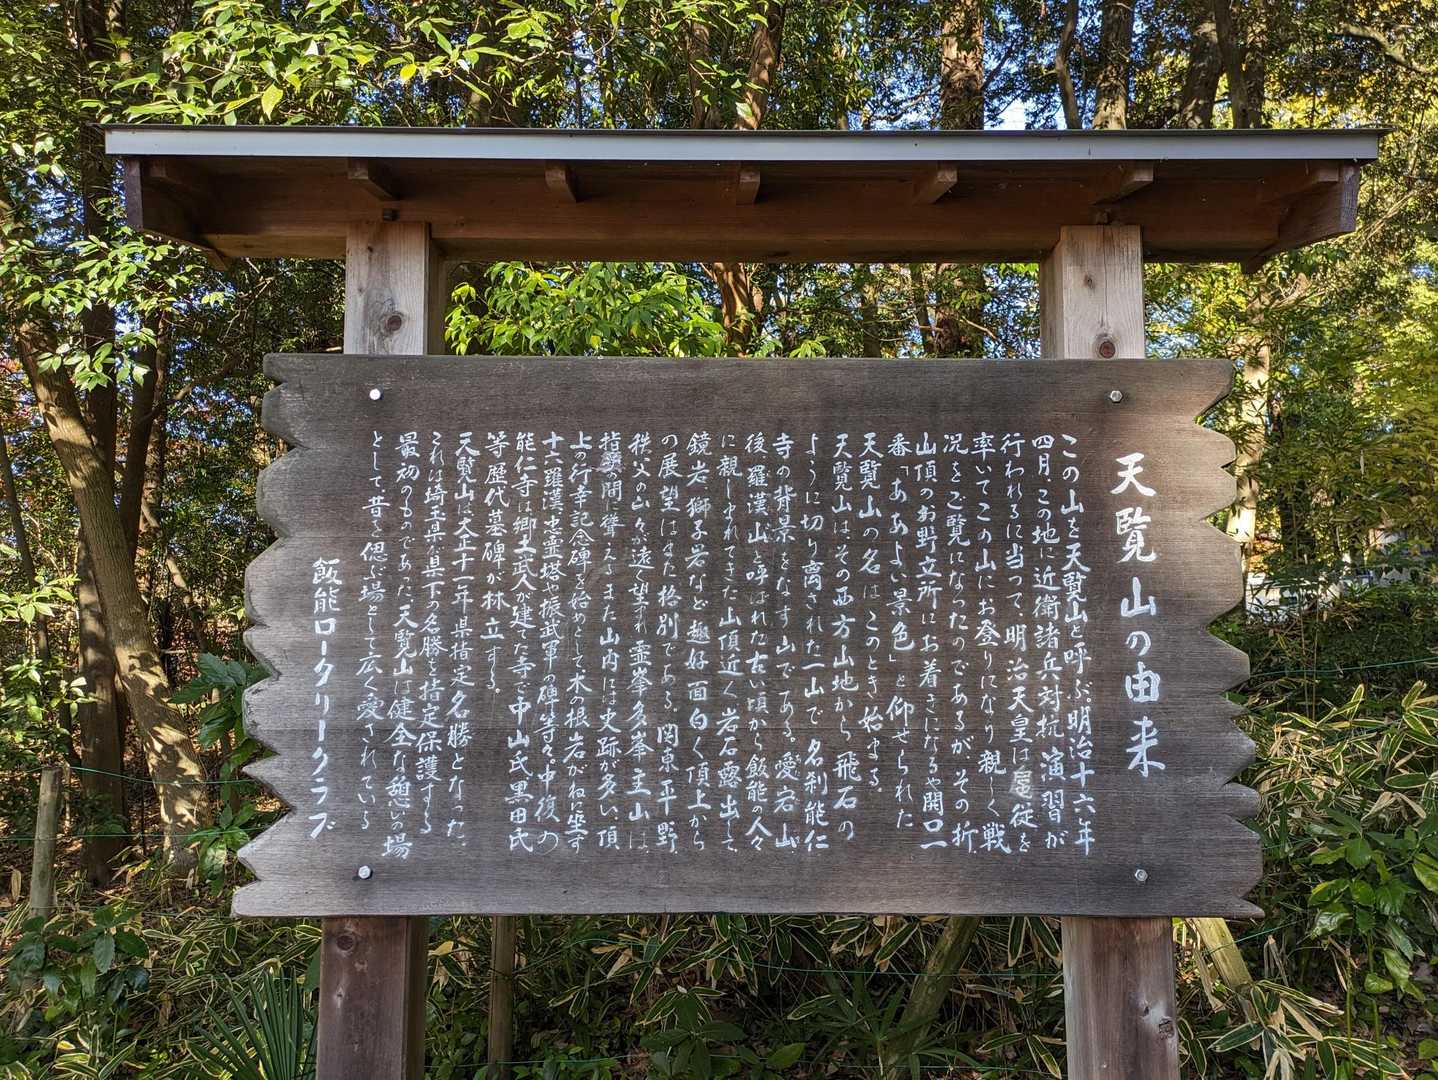 天覧山の由来
この山を天覧山と呼ぶ。明治十六年
四月、この地に近衛諸兵対抗演習が
行われるに当って、明治天皇は扈従を
率いてこの山にお登りになり親しく戦
況をご覧になったのであるが、その折、
山頂のお野立所にお着きになるや開口一
番「ああよい景色」と仰せられた
天覧山の名はこのとき始まる。
天覧山は、その西方山地から飛石の
ように切り離された一山で名刹能仁
寺の背景をなす山である。愛宕山、
後羅漢山と呼ばれた古い頃から飯能の人々
に親しまれてきた山頂近く岩石露出して、
鏡岩、獅子岩など趣好面白く頂上から
の展望はまた格別である。関東平野、
秩父の山々が遠く望まれ霊峯多峯主山は、
指顧の間に聳えるまた山内には史跡が多い、頂
上の行幸記念碑を始めとして、木の根岩がねに坐す
十六羅漢忠霊塔や振武軍の碑等々。中復の
能仁寺は郷土武人が建てた寺で中山氏黒田氏
等歴代墓碑が林立する。
天覧山は大正十一年県指定名勝となった、
これは埼玉県が県下の名勝を指定保護する
最初のものであった、天覧山は健全な憩いの場
として、昔を偲ぶ場として広く愛されている
飯能ロータリークラブ